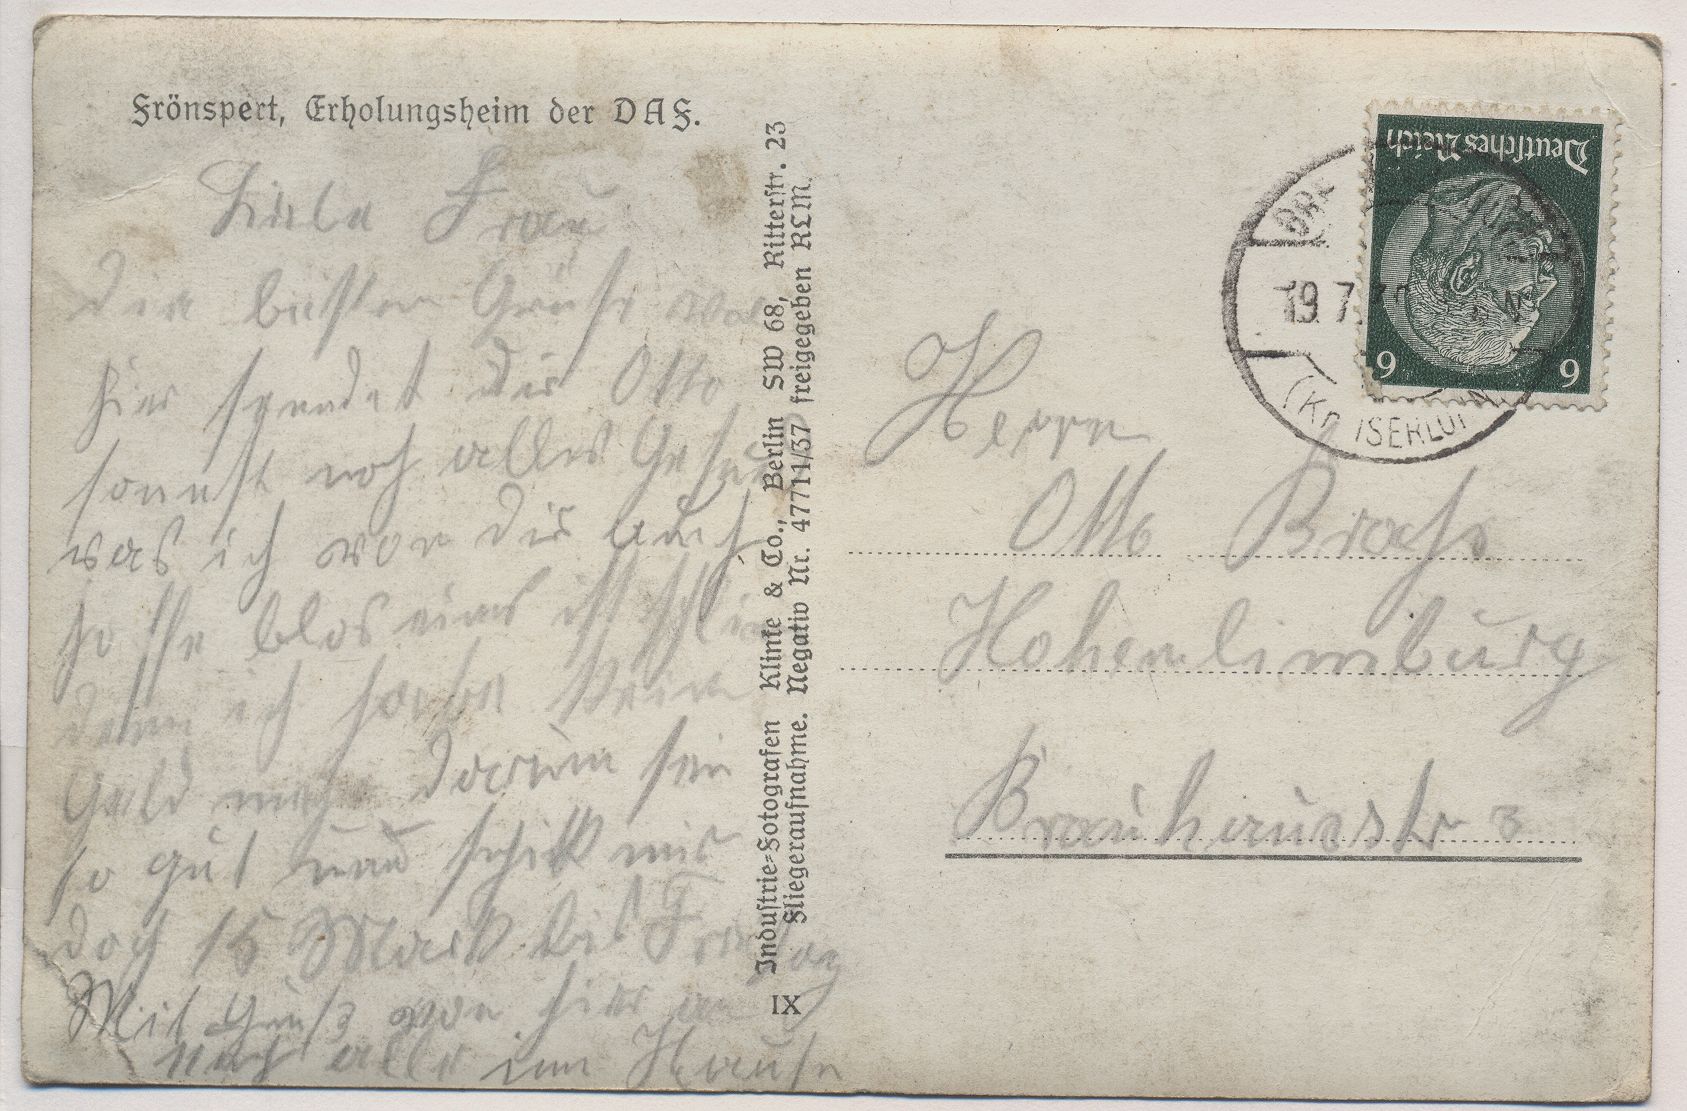 Frönspert, Erholungsheim der DAF.
Liebe Frau
die besten Grüße von
hier sendet dir Otto
sonst noch alles Gesund
was ich von dir auch
hoffe blos eins ist schlim
denn ich habe kein
Geld mehr darum sei
so gut und schick mir
doch 15 Mark bis Freitag
Mit Gruß von hier an
alle im Hause
Industrie-Fotografen Klinke & Co., Berlin SW 68, Ritterstr. 23
Fliegeraufnahme. Negativ Nr. 47711/37 freigegeben RLM.
IX
Deutsches Reich
6 6
19.7.
ISERLOHN
Herrn
Otto
Hohenlimburg
Brauhausstr 3